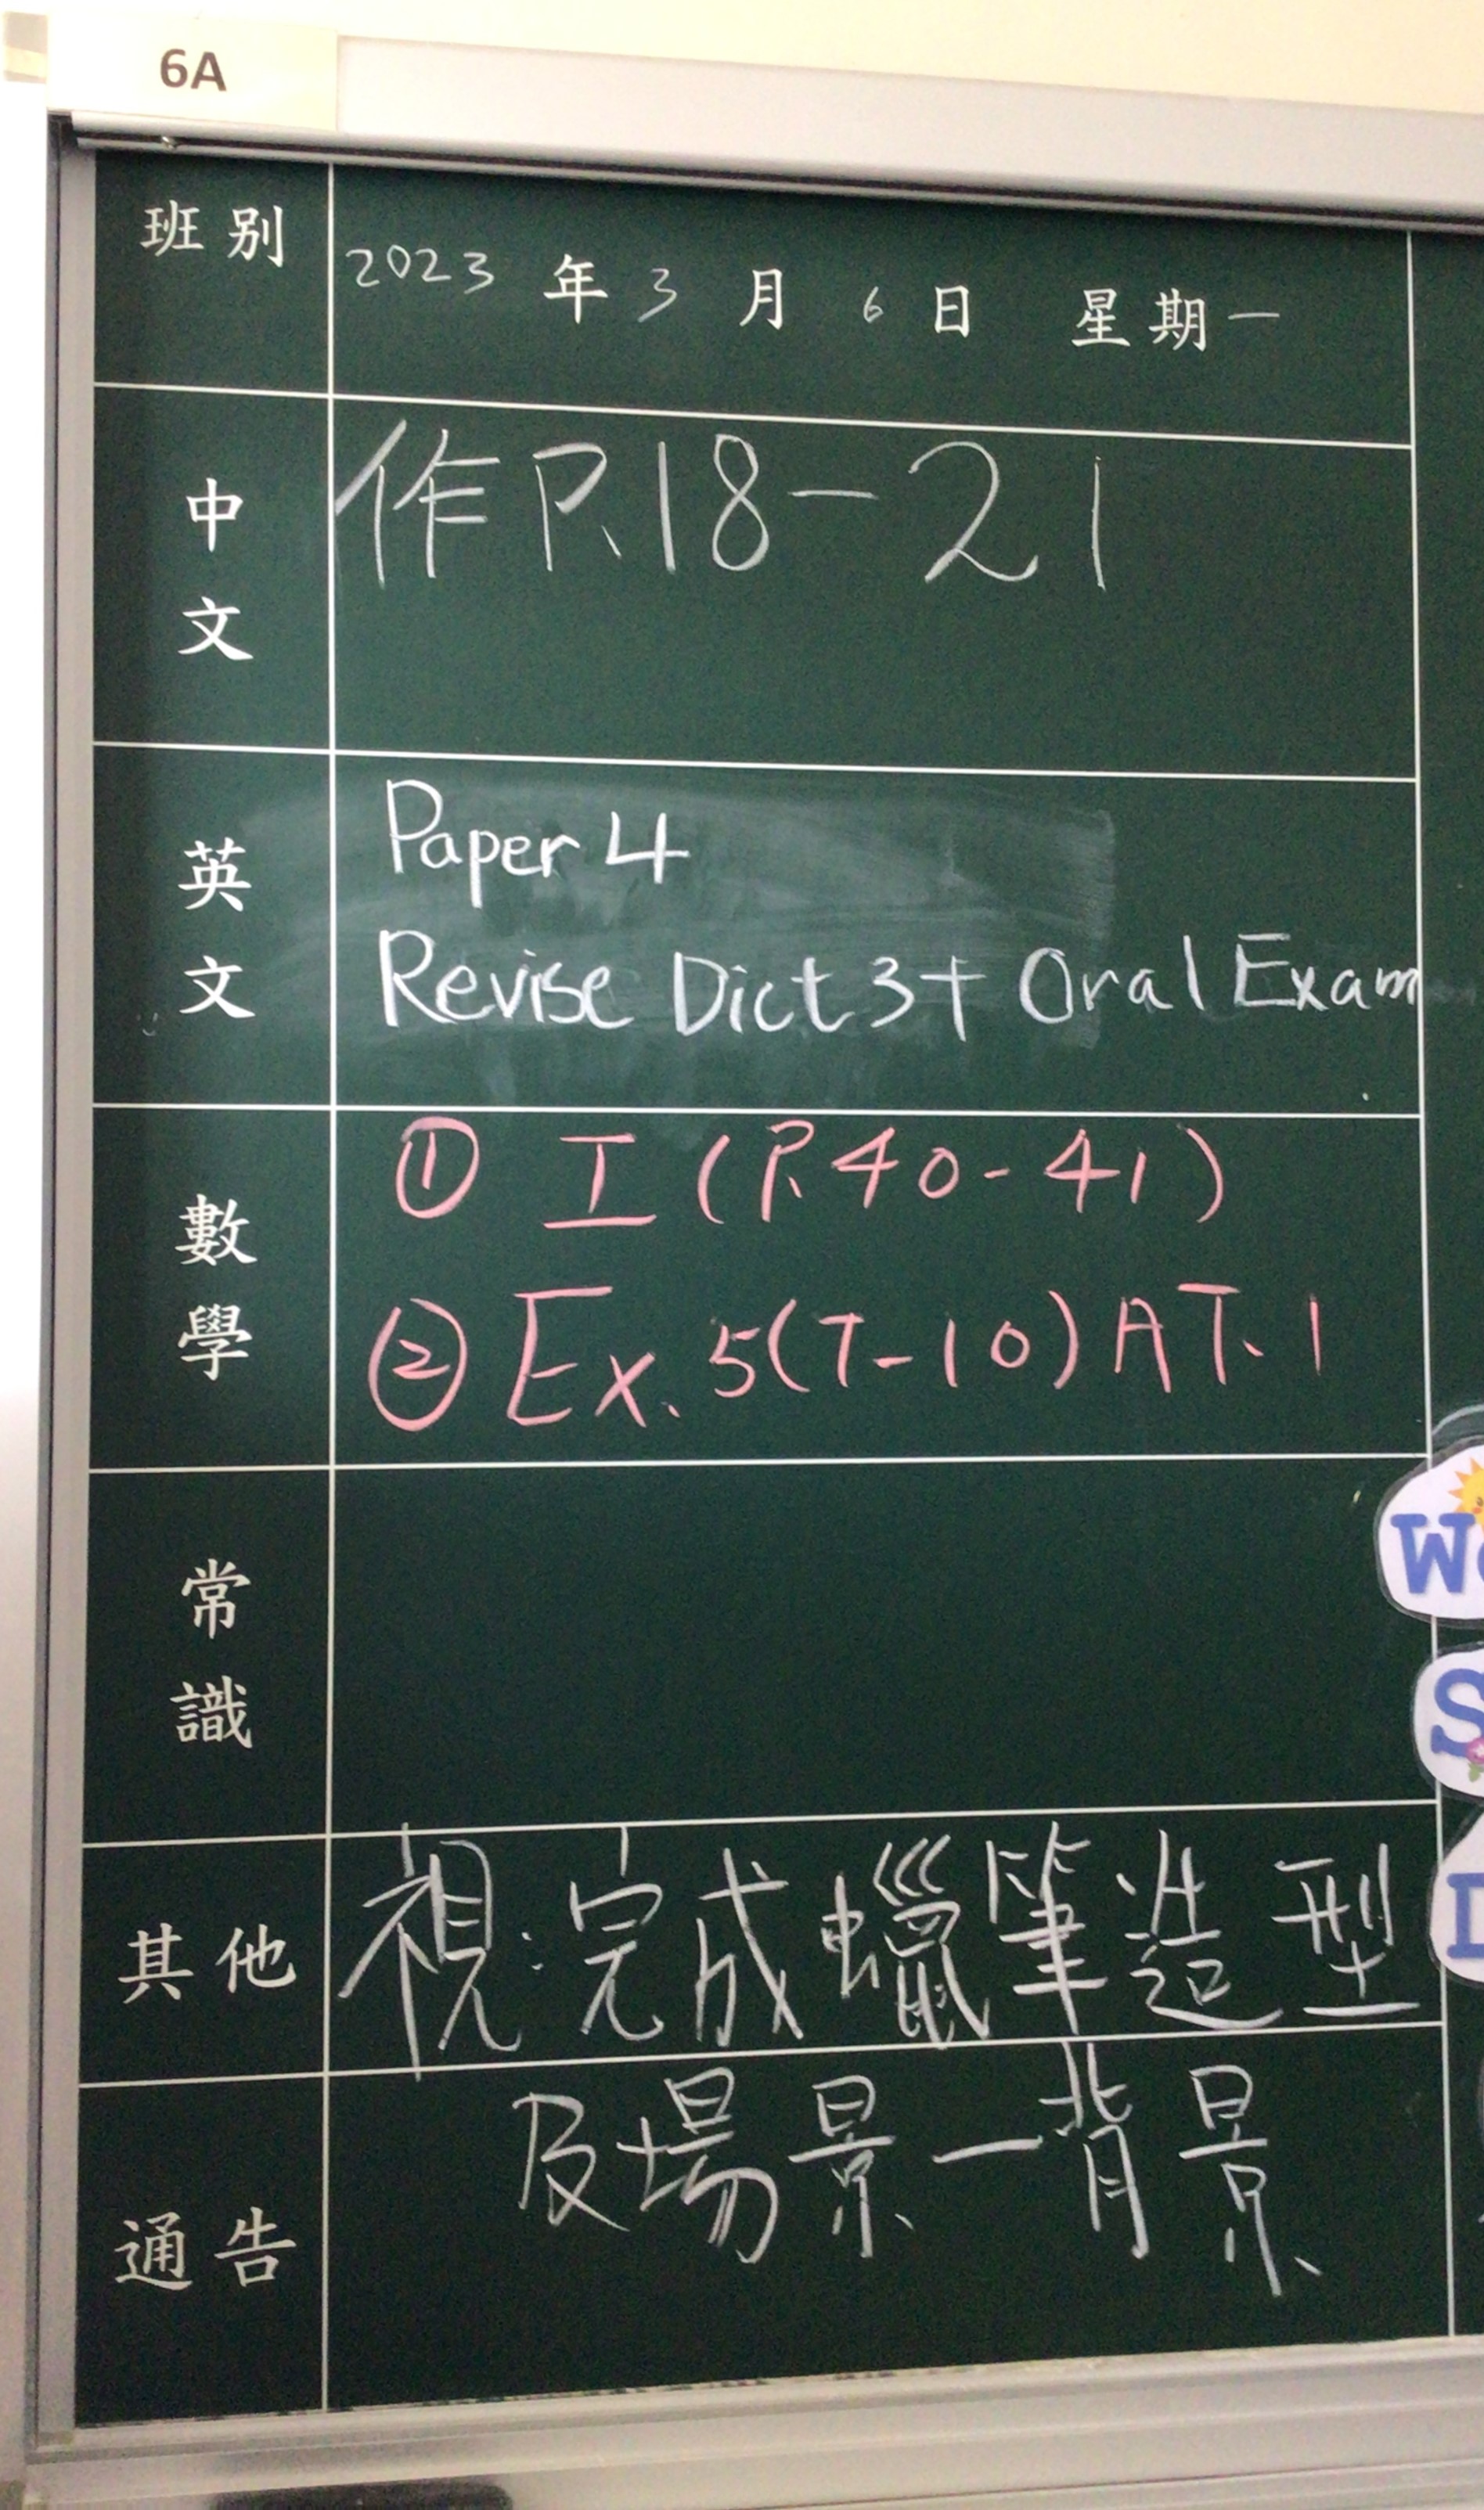 6A
班別 2023年3月6日 星期一
中文 作P.18-21
英文 Paper 4
Revise Dict 3 + Oral Exam
數學 ① I (P.40-41)
② Ex. 5(T-10) A T. 1
常識
其他 視:完成蠟筆造型
及場景—背景
通告